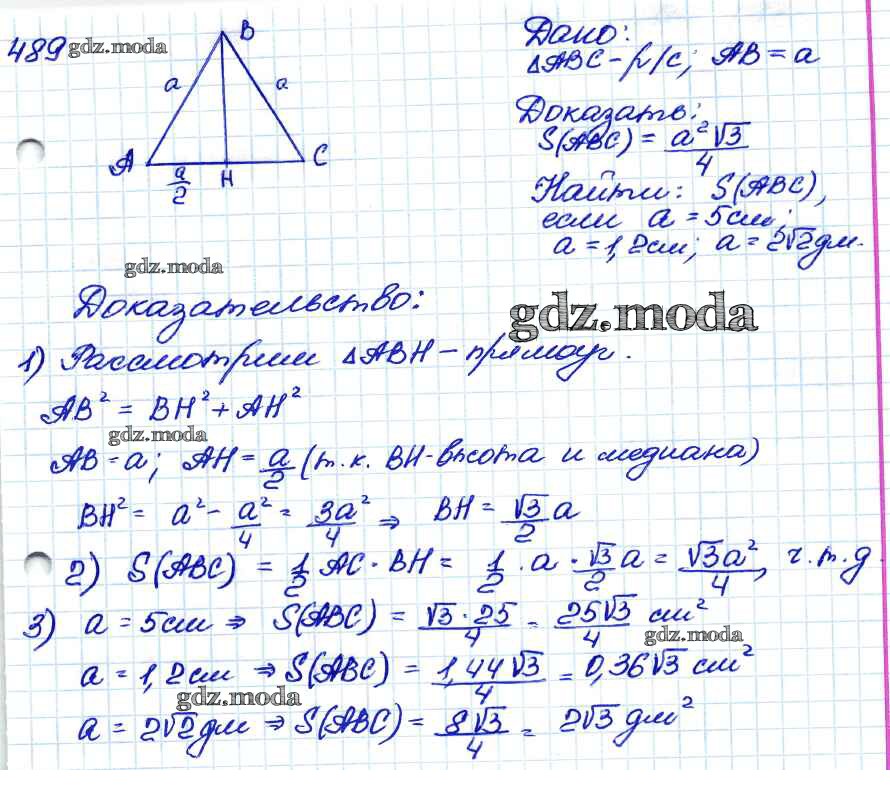 489 gdz.moda
B
a a
A C
a/2 H
Дано:
△ABC - р/с; AB = a
Доказать:
S(ABC) = a²√3/4
Найти: S(ABC),
если a = 5см;
a = 1,2см; a = 2√2дм.
gdz.moda
Доказательство:
gdz.moda
1) Рассмотрим △ABH - прямоуг.
AB² = BH² + AH²
gdz.moda
AB = a; AH = a/2 (т.к. BH-высота и медиана)
BH² = a² - a²/4 = 3a²/4 ⇒ BH = √3/2 a
2) S(ABC) = 1/2 AC · BH = 1/2 · a · √3/2 a = √3a²/4, ч.т.д.
3) a = 5см ⇒ S(ABC) = √3·25/4 = 25√3/4 см²
gdz.moda
a = 1,2см ⇒ S(ABC) = 1,44√3/4 = 0,36√3 см²
gdz.moda
a = 2√2дм ⇒ S(ABC) = 8√3/4 = 2√3 дм²